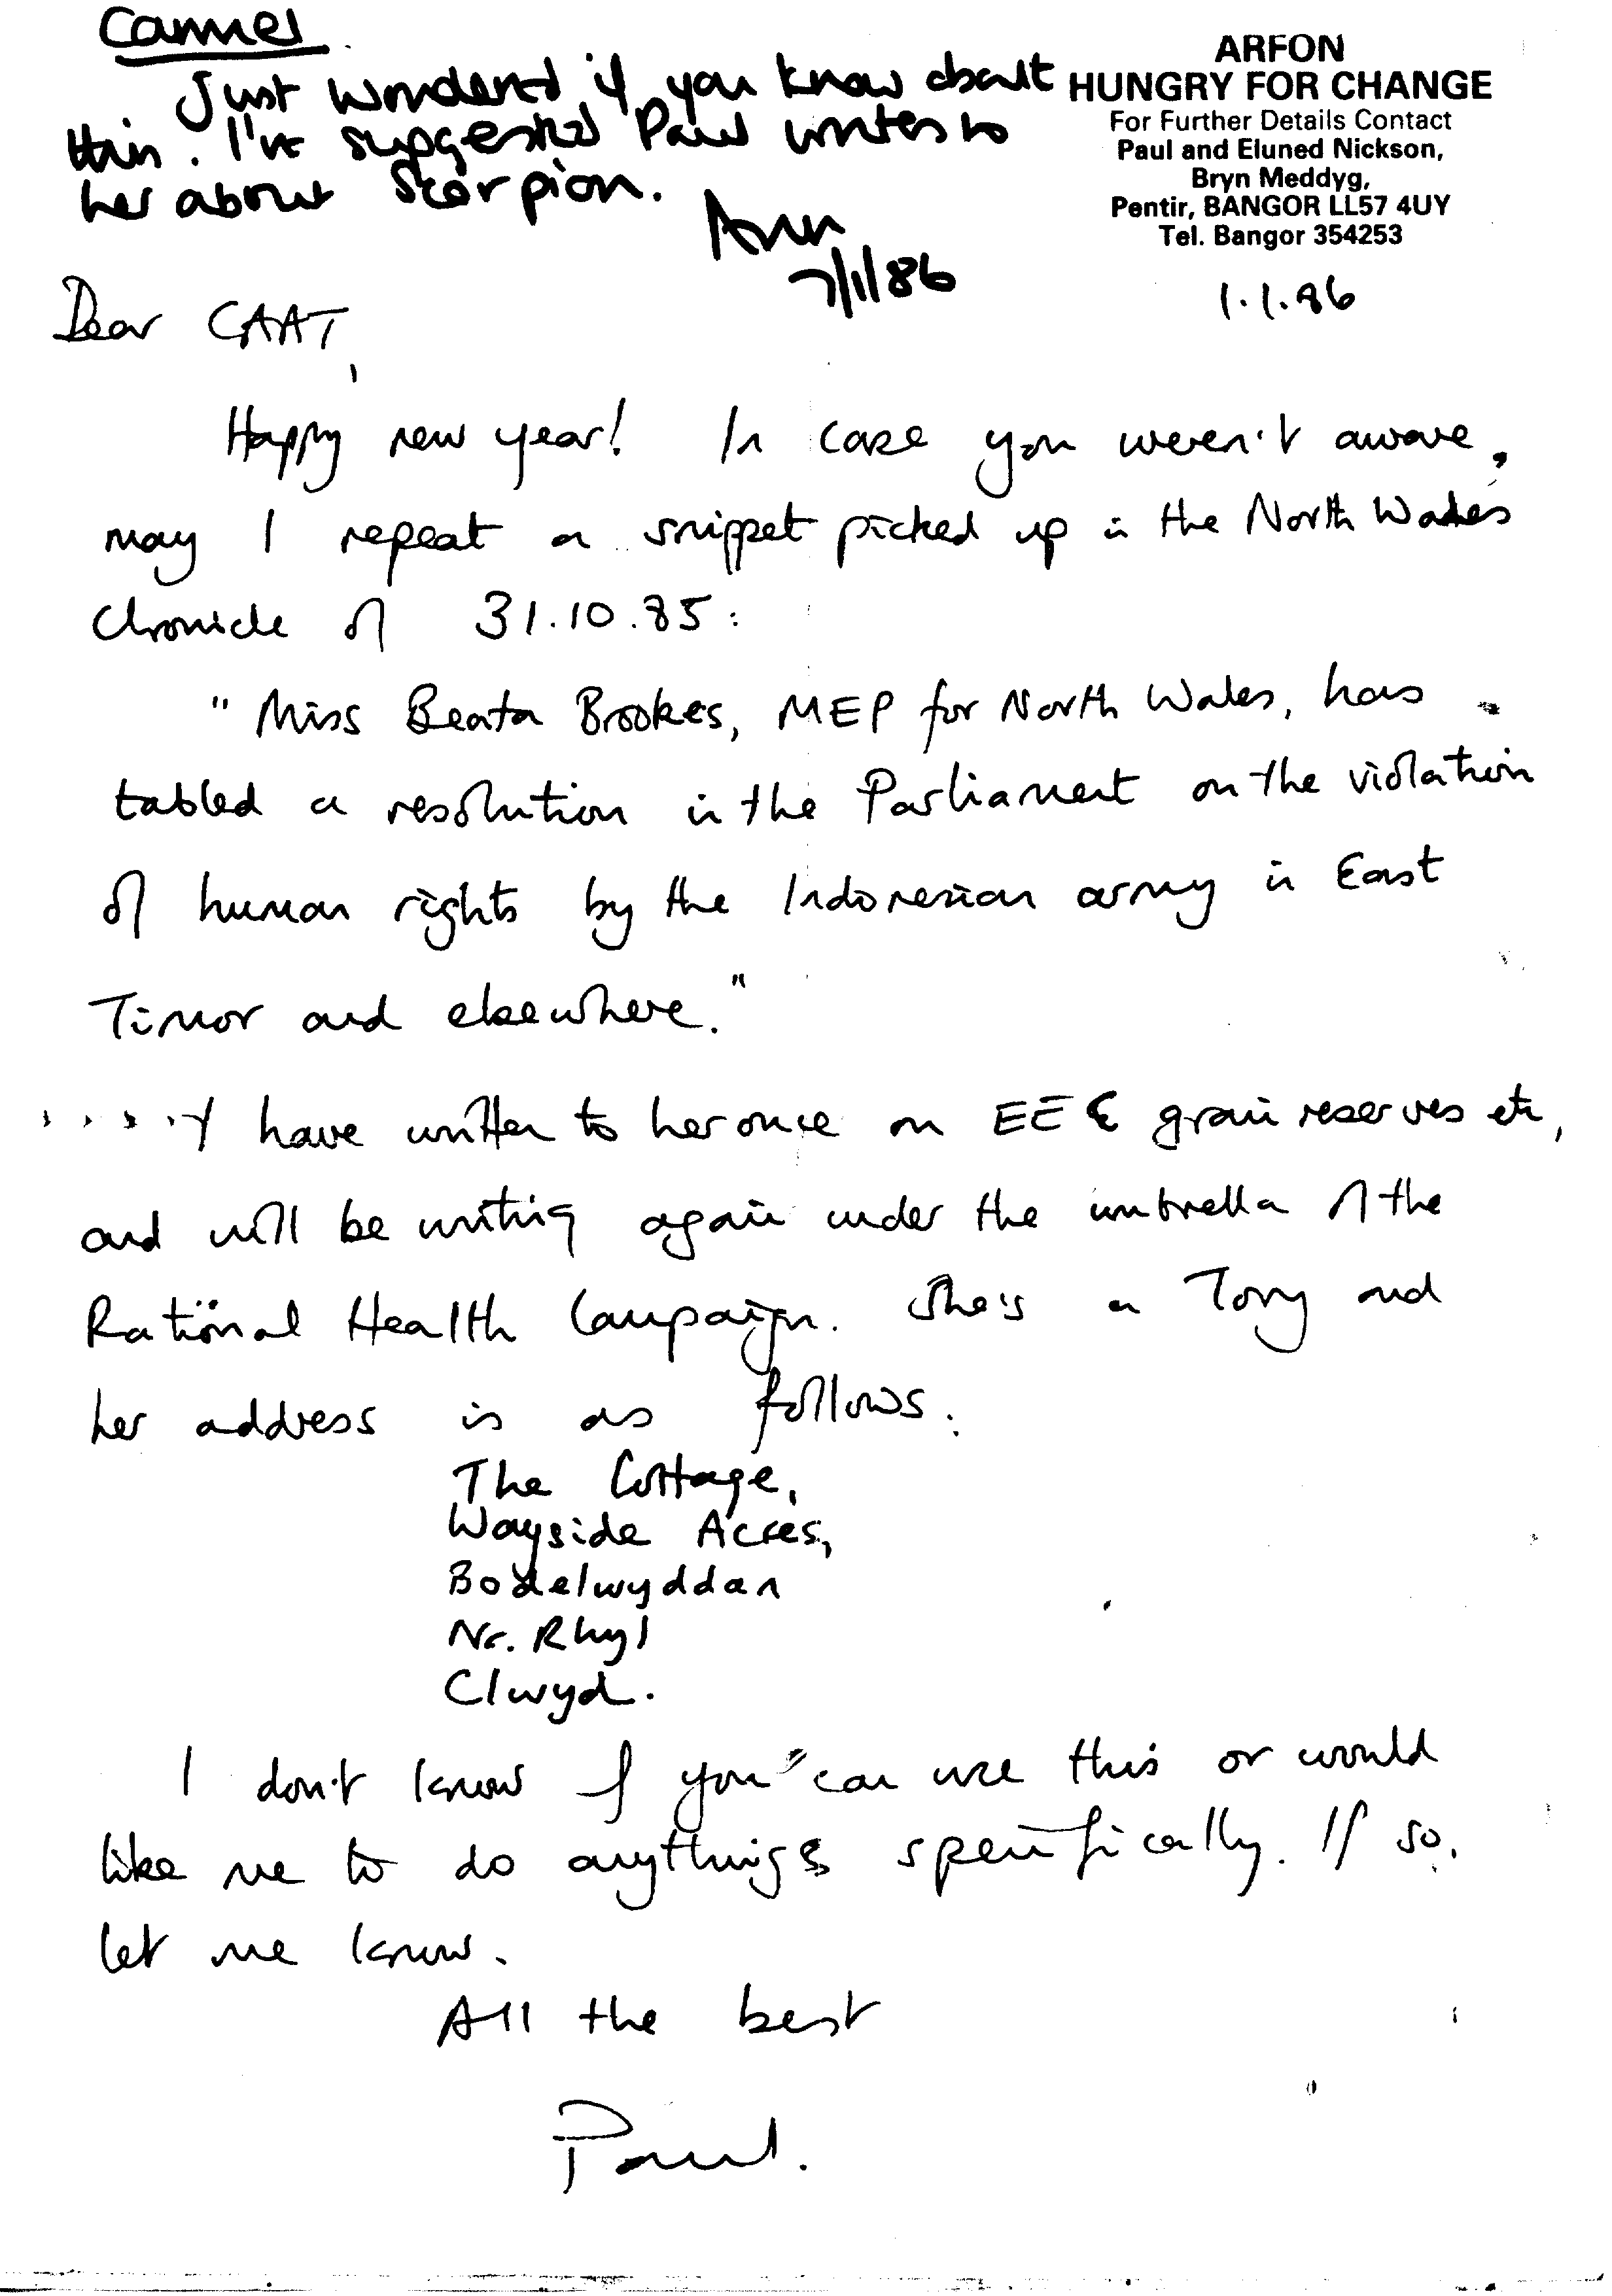 Carmel
Just wondered if you know about
this. I've suggested Paul writes to
her about Scorpion.
Ann
7/1/86
ARFON
HUNGRY FOR CHANGE
For Further Details Contact
Paul and Eluned Nickson,
Bryn Meddyg,
Pentir, BANGOR LL57 4UY
Tel. Bangor 354253
1.1.86
Dear CAAT,
Happy new year! In case you weren't aware,
may I repeat a snippet picked up in the North Wales
Chronicle of 31.10.85:
"Miss Beata Brookes, MEP for North Wales, has
tabled a resolution in the Parliament on the violation
of human rights by the Indonesian army in East
Timor and elsewhere."
I have written to her once on EEC grain reserves etc,
and will be writing again under the umbrella of the
Rational Health Campaign. She's a Tory and
her address is as follows:
The Cottage,
Wayside Acres,
Bodelwyddan
Nr. Rhyl
Clwyd.
I don't know if you can use this or would
like me to do anything specifically. If so,
let me know.
All the best
Paul.